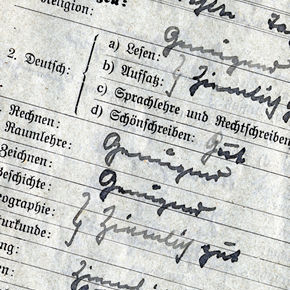 Religion:
2. Deutsch:
a) Lesen: Genügend
b) Aufsatz: Ziemlich
c) Sprachlehre und Rechtschreiben
d) Schönschreiben: Gut
Rechnen:
Raumlehre: Genügend
Zeichnen:
Geschichte: Genügend
Geographie:
Naturkunde: Ziemlich gut